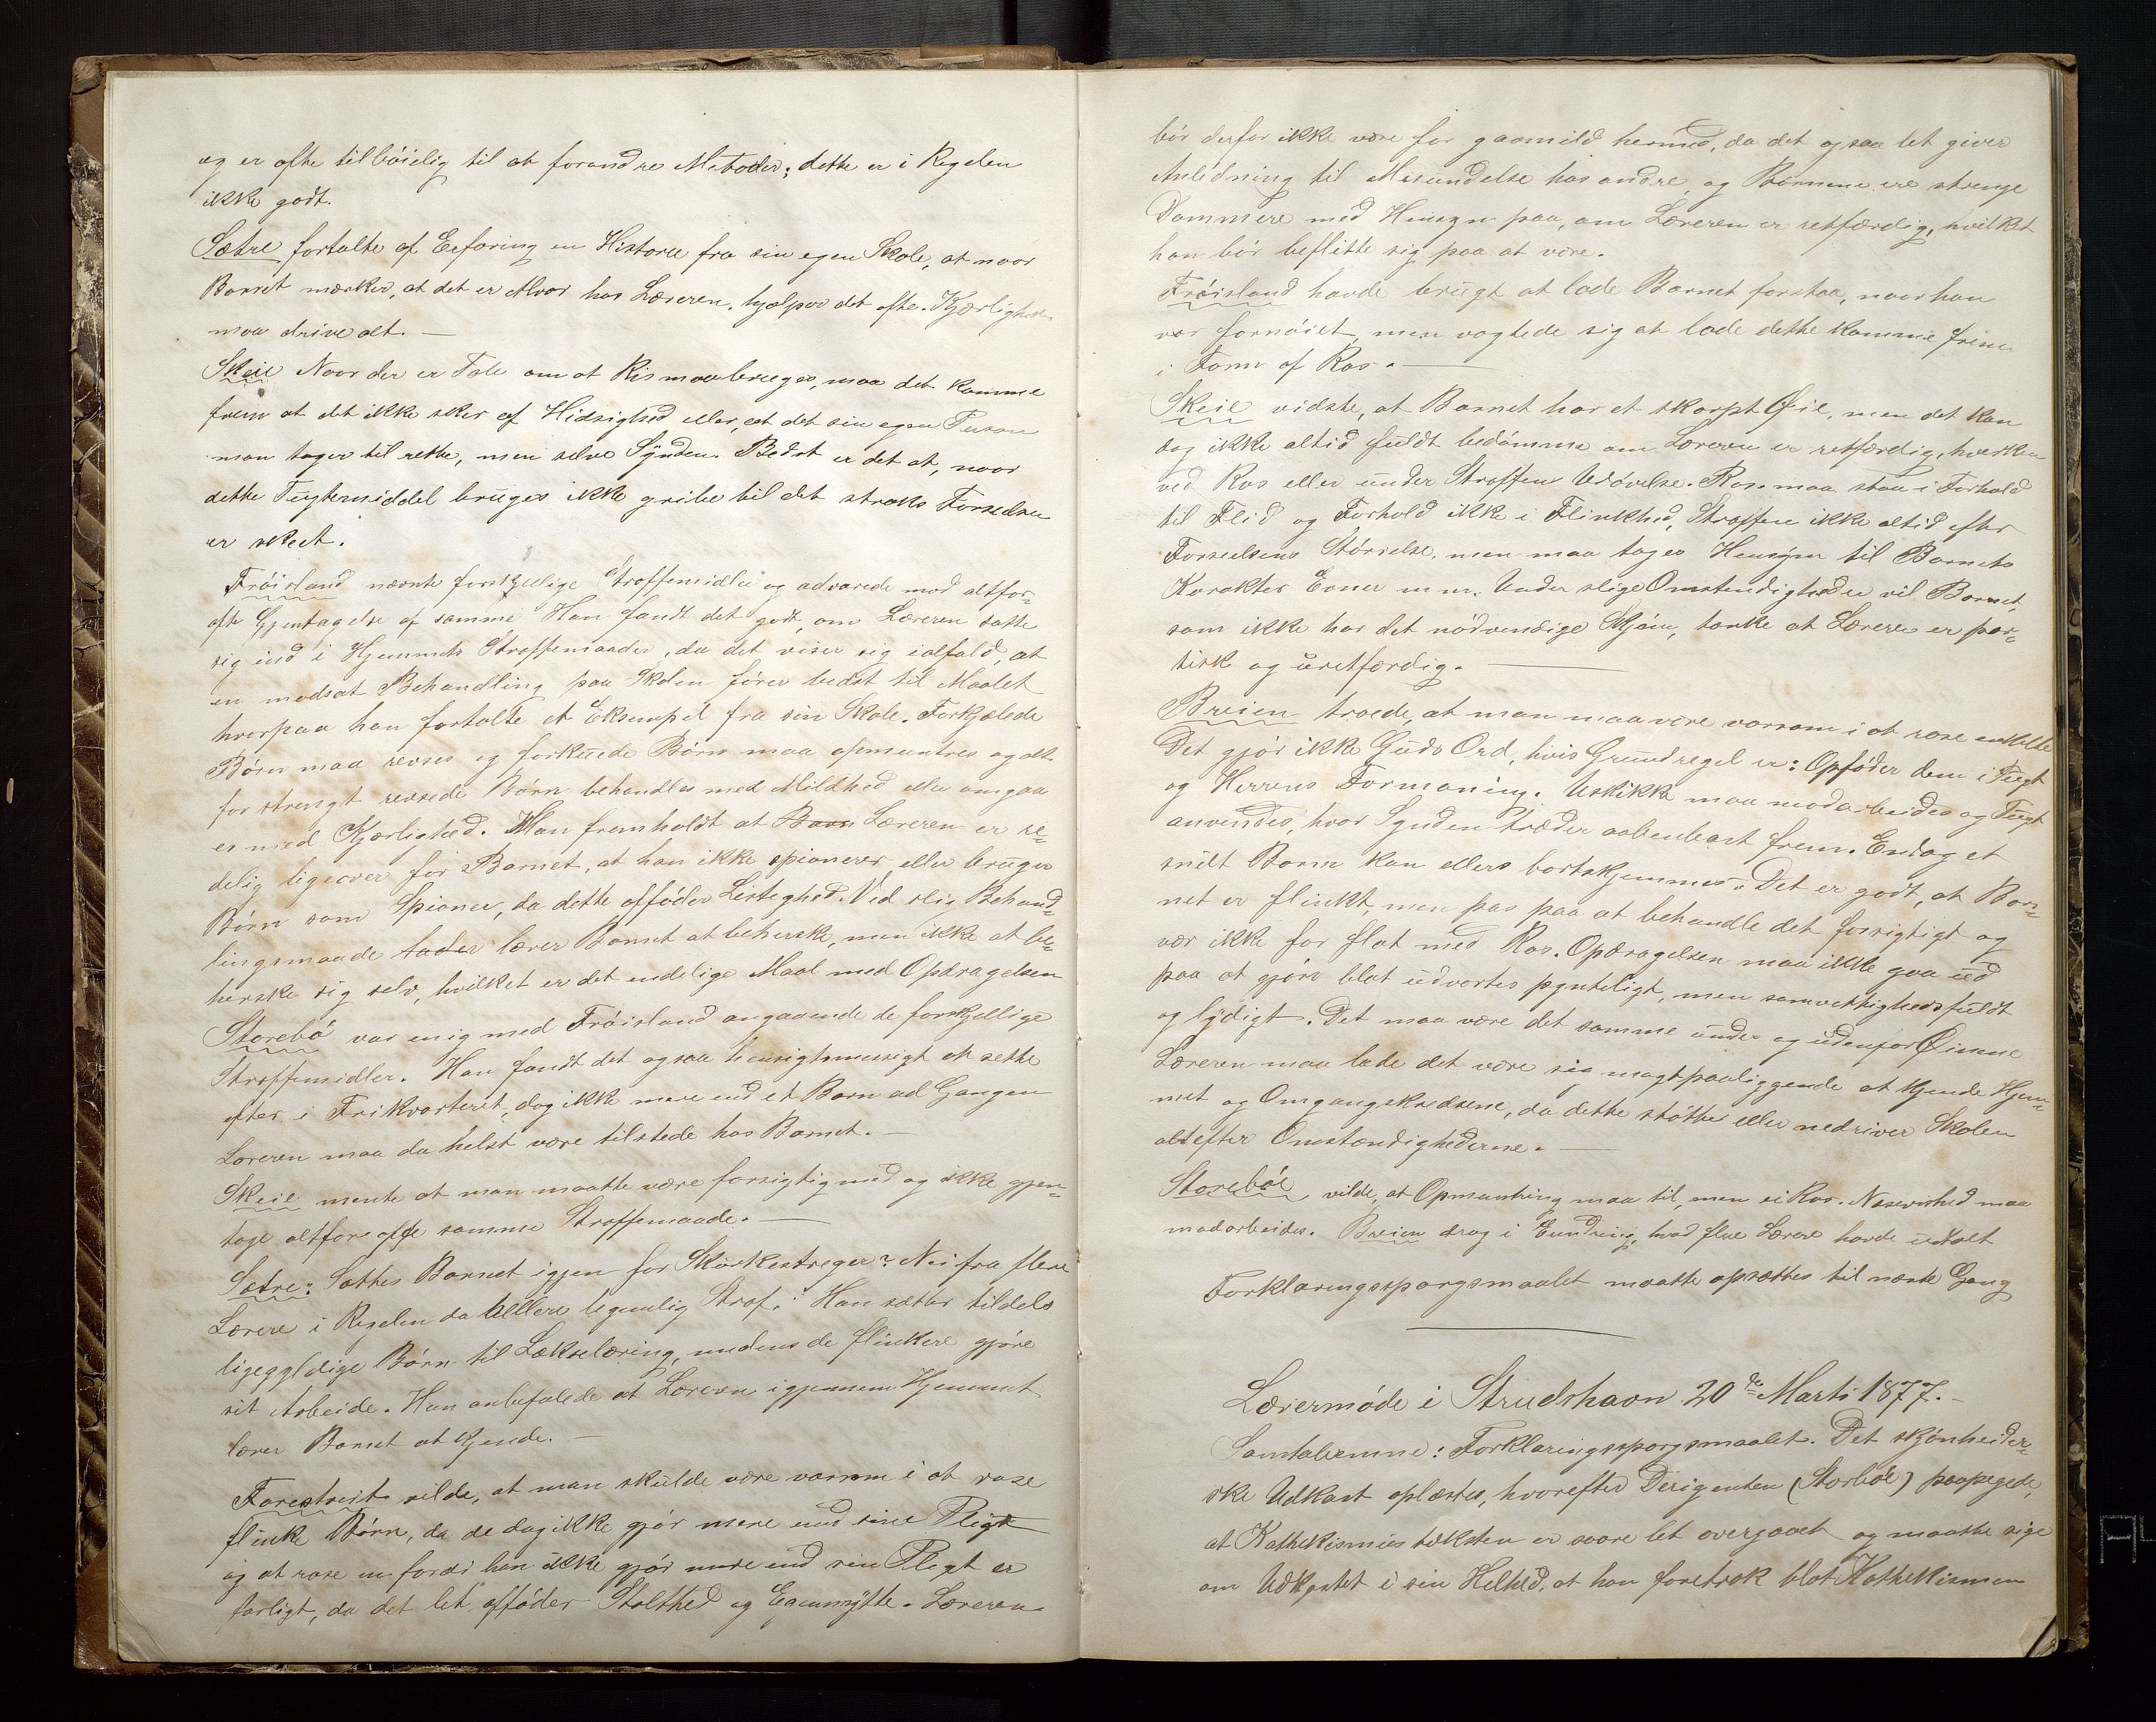 og er ofte tilbøielig til at forandre Metoder; dette er i Regelen
ikke godt.
Sætre fortalte af Erfaring en Historie fra sin egen Skole, at naar
Barnet mærker, at det er Alvor hos Læreren, hjælper det ofte. Kjærligheden
maa drive alt. —
Skeie Naar der er Tale om at Ris maa bruges, maa det komme
frem at det ikke sker af Hidsighed eller, at det sin egen Person
man tager til rette, men selve Synden. Bedst er det at, naar
dette Tugtemiddel bruges ikke gribe til det straks Forseelsen
er skeet.
Frøisland nævnte forskjellige Straffemidler og advarede mod altfor-
ofte Gjentagelse af samme Han fandt det godt, om Læreren satte
sig ind i Hjemmets Straffemaader, da det viser sig ialfald, at
en modsat Behandling paa Skolen fører bedst til Maalet
hvorpaa han fortalte et Eksempel fra sin Skole. Forkjælede
Børn maa revses og forkuede Børn maa opmuntres og alt
for strengt revsede Børn behandles med Mildhed eller omgaa
es med Kjærlighed. Man fremholdt at Barn Læreren er re-
delig ligeover for Barnet, at han ikke spionerer eller bruger
Børn som Spioner, da dette afføder Listighed. Ved slig Behand-
lingsmaade lærer Barnet at beherske, men ikke at be-
herske sig selv, hvilket er det endelige Maal med Opdragelsen
Storebø var enig med Frøisland angaaende de forskjellige
Straffemidler. Han fandt det ogsaa hensigtsmessigt at sette
efter i Frikvarteret, dog ikke mere end et Barn ad Gangen
Læreren maa da helst være tilstede hos Barnet. —
Skeie mente at man maatte være forsigtig med og ikke gjen-
tage altfor ofte samme Straffemaade. —
Sætre: Sættes Barnet igjen for Skarkestreger? Nei fra flere
Lærere i Regelen da hellere legemlig Straf. Han sætter tildels
ligegyldige Børn til Lækselæring, medens de flinkere gjøre
sit Arbeide. Han anbefalede at Læreren igjennem Hjemmet
lærer Barnet at kjende. —
Forestveit vilde, at man skulde være varsom i at rose
flinke Børn, da de dog ikke gjør mere end sine Pligt
og at rose en fordi han ikke gjør mere end sin Pligt er
farligt, da det let afføder Stolthed og Egennytte. Læreren
bør derfor ikke være for gavmild hermed, da det ogsaa let giver
Anledning til Misundelse hos andre, og Børnene ere strenge
Dommere med Hensyn paa, om Læreren er retfærdig, hvilket
han bør beflitte sig paa at være.
Frøisland havde brugt at lade Barnet forstaa, naar han
var fornøiet, men vogtede sig at lade dette komme frem
i Form af Ros. —
Skeie vidste, at Barnet har et skarpt Øie, men det kan
dog ikke altid fuldt bedømme om Læreren er retfærdig, hverken
ved Ros eller under Straffens Udøvelse. Rosen maa staa i Forhold
til Flid og Forhold ikke i Flinkhed, Straffen ikke altid efter
Forseelsens Størrelse, men maa tages Hensyn til Barnets
Karakter Evner m.m. Under slige Omstendigheder vil Barnet,
som ikke har det nødvendige Skjøn, tænke at Læreren er par-
tisk og uretfærdig. —
Breien troede, at man maa være varsom i at rose enkelte
Det gjør ikke Guds Ord, hvis Grundregel er: Opføder dem i Tugt
og Herrens Formaning. Uskikke maa modarbeides og Tugt
anvendes, hvor Synden træder aabenbart frem. Endog et
snilt Barn kan ellers bortskjemmes. Det er godt, at Bar-
net er flinkt, men pas paa at behandle det forsigtigt og
vær ikke for flot med Ros. Opdragelsen maa ikke gaa ud
paa at gjøre blot udvortes pynteligt, men samvettighedsfuldt
og lydigt. Det maa være det samme under og udenfor Øinene
Læreren maa lade det være sig magtpaaliggende at kjende Hjem-
met og Omgangskredsene, da dette støtter eller nedriver Skolen
alt efter Omstændighederne. —
Storebøe vilde, at Opmuntring maa til, men ei Ros. Næsevished maa
modarbeides. Breien drog i Erindring, hvad flere Lærere havde udtalt
Forklaringsspørgsmaalet maatte opsættes til næste Gang
Lærermøde i Strudshavn 20de Marts 1877. —
Samtaleemne: Forklaringsspørgsmaalet. Det skjønheider-
ske Udkast oplæstes, hvorefter Dirigenten (Storbøe) paapegede,
at Kathekismusteksten er svære let overgaaet og maatte sige
om Udkastet i sin Helhed, at han foretrak blot Kathekismen